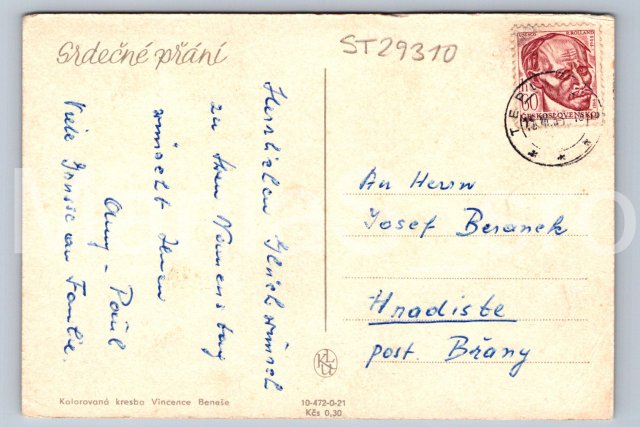 Srdečné přání
ST29310
Herzlichen Glückwunsch
zu Ihren Namenstag
wünscht Ihnen
Anny - Paul
Viele Grüsse an Familie.
UNESCO R. ROLLAND
60
ČESKOSLOVENSKO
An Herrn
Josef Beranek
Hradiste
post Břany
KLU
Kolorovaná kresba Vincence Beneše
10-472-0-21
Kčs 0,30